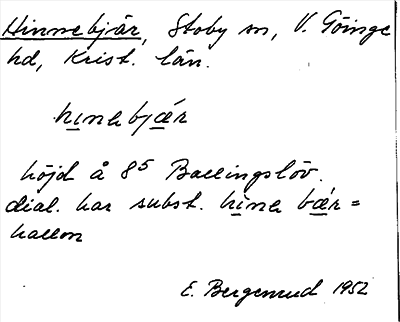 Hinnebjär, Stoby sn, V. Göinge
hd, Krist. län.
hinebjǽr
höjd å 8⁵ Ballingslöv.
dial. har subst. hine bǽr =
hallon
E. Bergenrud 1952